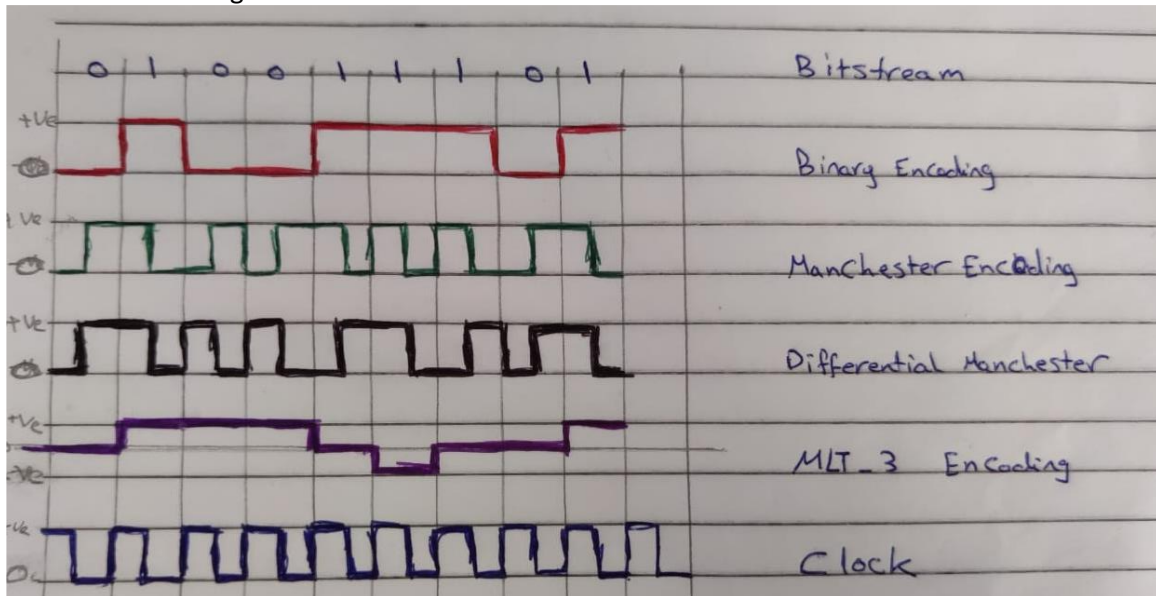 0 1 0 0 1 1 1 0 1 Bitstream
+Ve
Binary Encoding
+Ve
Manchester Encoding
+Ve
Differential Manchester
+Ve
MLT_3 Encoding
-Ve
Clock
0